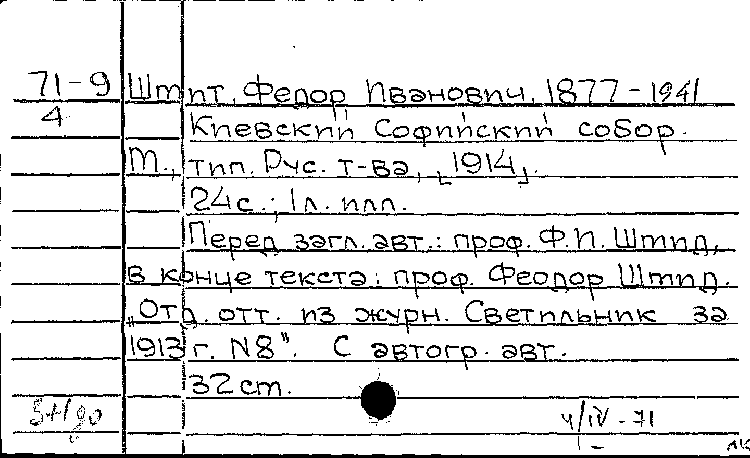 71-9 Шмит, Федор Иванович, 1877-1941
4 Киевский Софийский собор.
М., тип. Рус. т-ва, [1914].
24с.; 1л. илл.
Перед загл. авт.: проф. Ф.И. Шмид,
в конце текста: проф. Феодор Шмид.
„Отд. отт. из журн. Светильник за
1913 г. N8". С автогр. авт.
32 ст.
4/IV-71